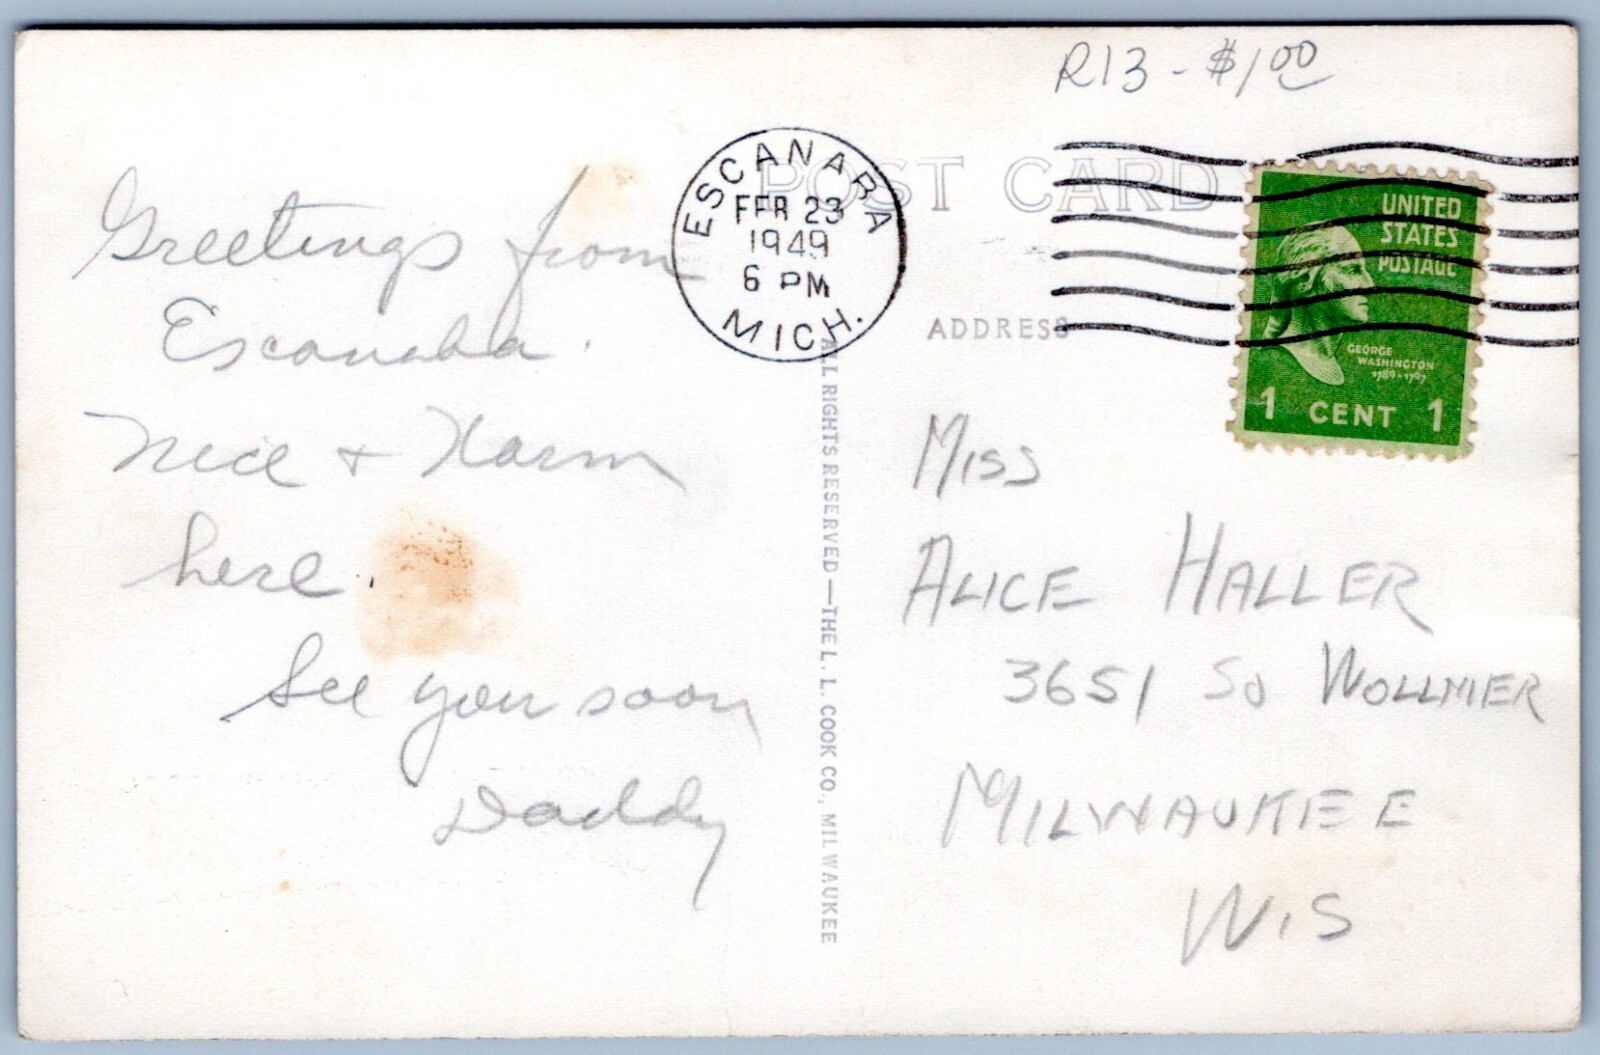 R13 - $1.00
POST CARD
ESCANABA
FEB 23
1949
6 PM
MICH.
UNITED
STATES
POSTAGE
GEORGE
WASHINGTON
1789-1797
1 CENT 1
ADDRESS
Greetings from
Escanaba.
Nice + Warm
here.
See you soon
Daddy
ALL RIGHTS RESERVED—THE L. L. COOK CO., MILWAUKEE
MISS
ALICE HALLER
3651 SO WOLLMER
MILWAUKEE
WIS